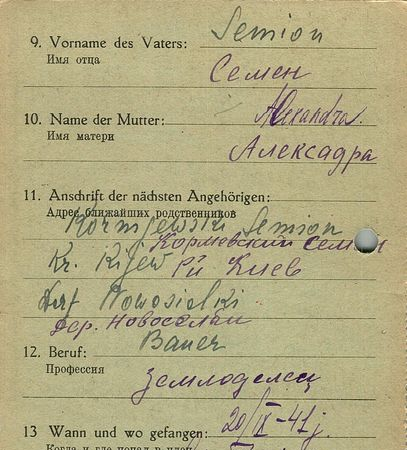 Semion
9. Vorname des Vaters:
Имя отца
Семен
Alexandra
10. Name der Mutter:
Имя матери
Алексадра
11. Anschrift der nächsten Angehörigen:
Адрес ближайших родственников
Kornijewski Semion
Корневский Семен
Kr. Kijew Рй Киев
Dorf Nowosielki
Дер. Новоселки
Bauer
12. Beruf:
Профессия
Земло­делец
20/IX-41 j.
13 Wann und wo gefangen:
Когда и где попал в плен